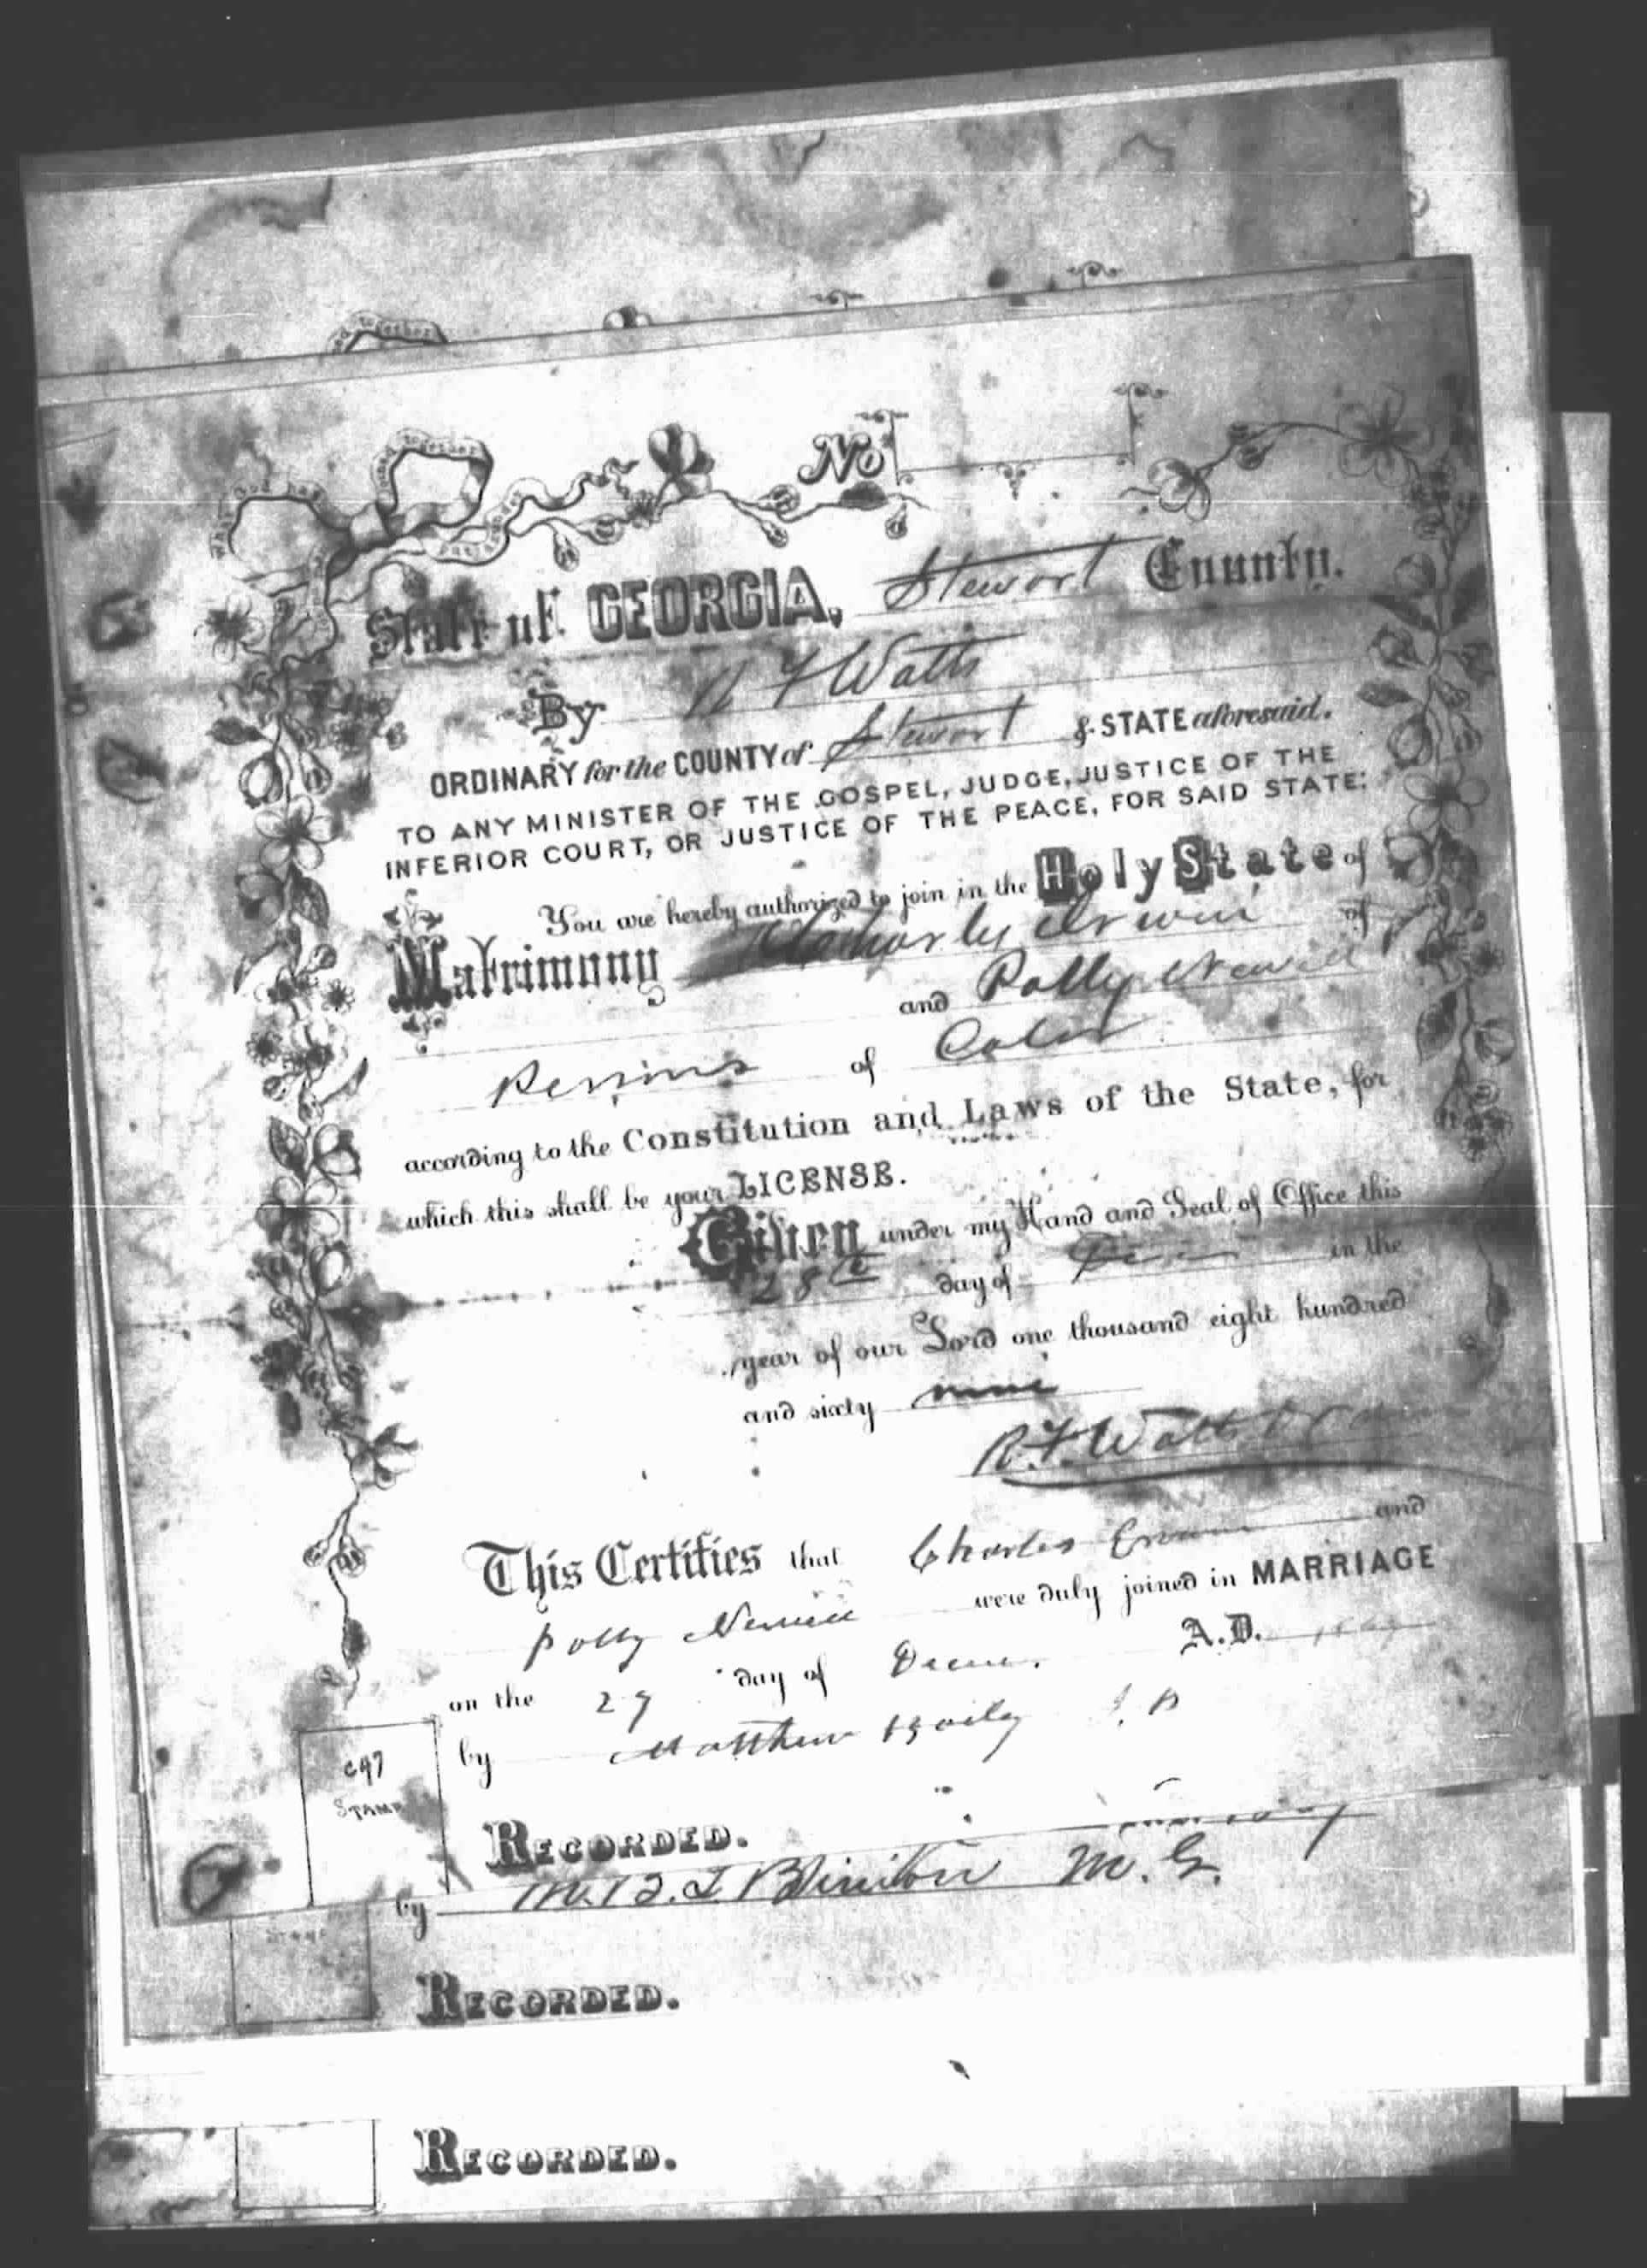 No
State of GEORGIA, Stewart County.
By R F Watts
ORDINARY for the COUNTY of Stewart & STATE aforesaid.
TO ANY MINISTER OF THE GOSPEL, JUDGE, JUSTICE OF THE
INFERIOR COURT, OR JUSTICE OF THE PEACE, FOR SAID STATE:
You are hereby authorized to join in the Holy State of
Matrimony Charly Irwin of
and Polly Newell
Persons of Color
according to the Constitution and Laws of the State, for
which this shall be your LICENSE.
Given under my Hand and Seal of Office this
28th day of in the
year of our Lord one thousand eight hundred
and sixty nine
R. F. Watts
This Certifies that Charles and
Polly were duly joined in MARRIAGE
on the 29 day of A.D.
by Matthew Baily J. P
C97
STAMP
RECORDED.
by M. G.
RECORDED.
RECORDED.